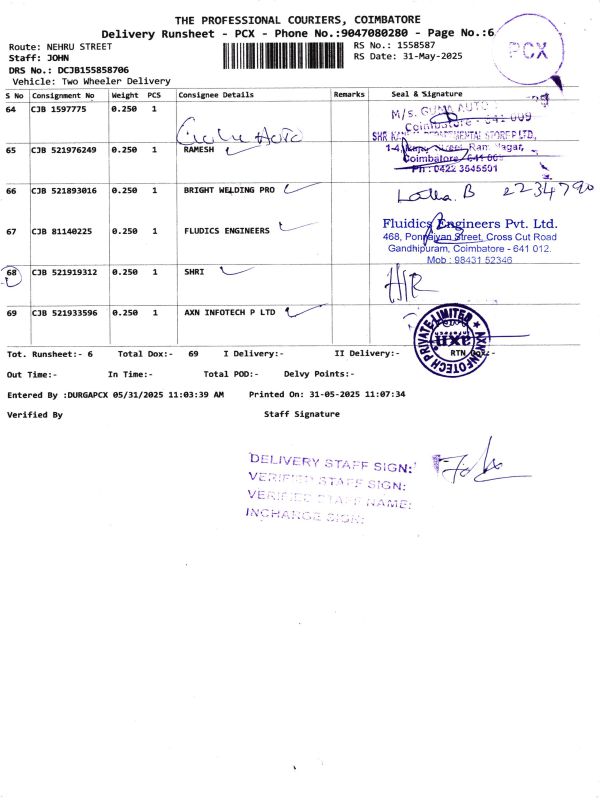 THE PROFESSIONAL COURIERS, COIMBATORE
Delivery Runsheet - PCX - Phone No.:9047080280 - Page No.:6
PCX
Route: NEHRU STREET
RS No.: 1558587
Staff: JOHN
RS Date: 31-May-2025
DRS No.: DCJB155858706
Vehicle: Two Wheeler Delivery
S No Consignment No Weight PCS Consignee Details Remarks Seal & Signature
64 CJB 1597775 0.250 1
M/s. GUNA AUTO
Coimbatore - 641 009
65 CJB 521976249 0.250 1 RAMESH
DEPARTMENTAL STORE P LTD,
Street, Ram Nagar,
Coimbatore 641 009
Ph : 0422 3645501
66 CJB 521893016 0.250 1 BRIGHT WELDING PRO
Latha. B 2234790
67 CJB 81140225 0.250 1 FLUDICS ENGINEERS
Fluidics Engineers Pvt. Ltd.
468, Ponnaiyan Street, Cross Cut Road
Gandhipuram, Coimbatore - 641 012.
Mob : 98431 52346
68 CJB 521919312 0.250 1 SHRI
69 CJB 521933596 0.250 1 AXN INFOTECH P LTD
AXN INFOTECH PRIVATE LIMITED
axn
infotech
Tot. Runsheet:- 6 Total Dox:- 69 I Delivery:- II Delivery:- RTN Dox:-
Out Time:- In Time:- Total POD:- Delvy Points:-
Entered By :DURGAPCX 05/31/2025 11:03:39 AM Printed On: 31-05-2025 11:07:34
Verified By Staff Signature
DELIVERY STAFF SIGN:
VERIFIED STAFF SIGN:
VERIFIED STAFF NAME:
INCHARGE SIGN: